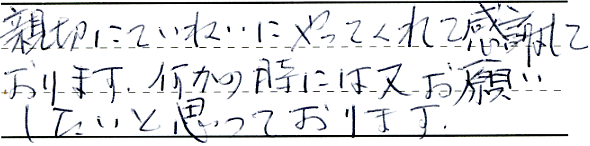 親切にていねいにやってくれて感謝して
おります。何かの時には又お願い
したいと思っております。